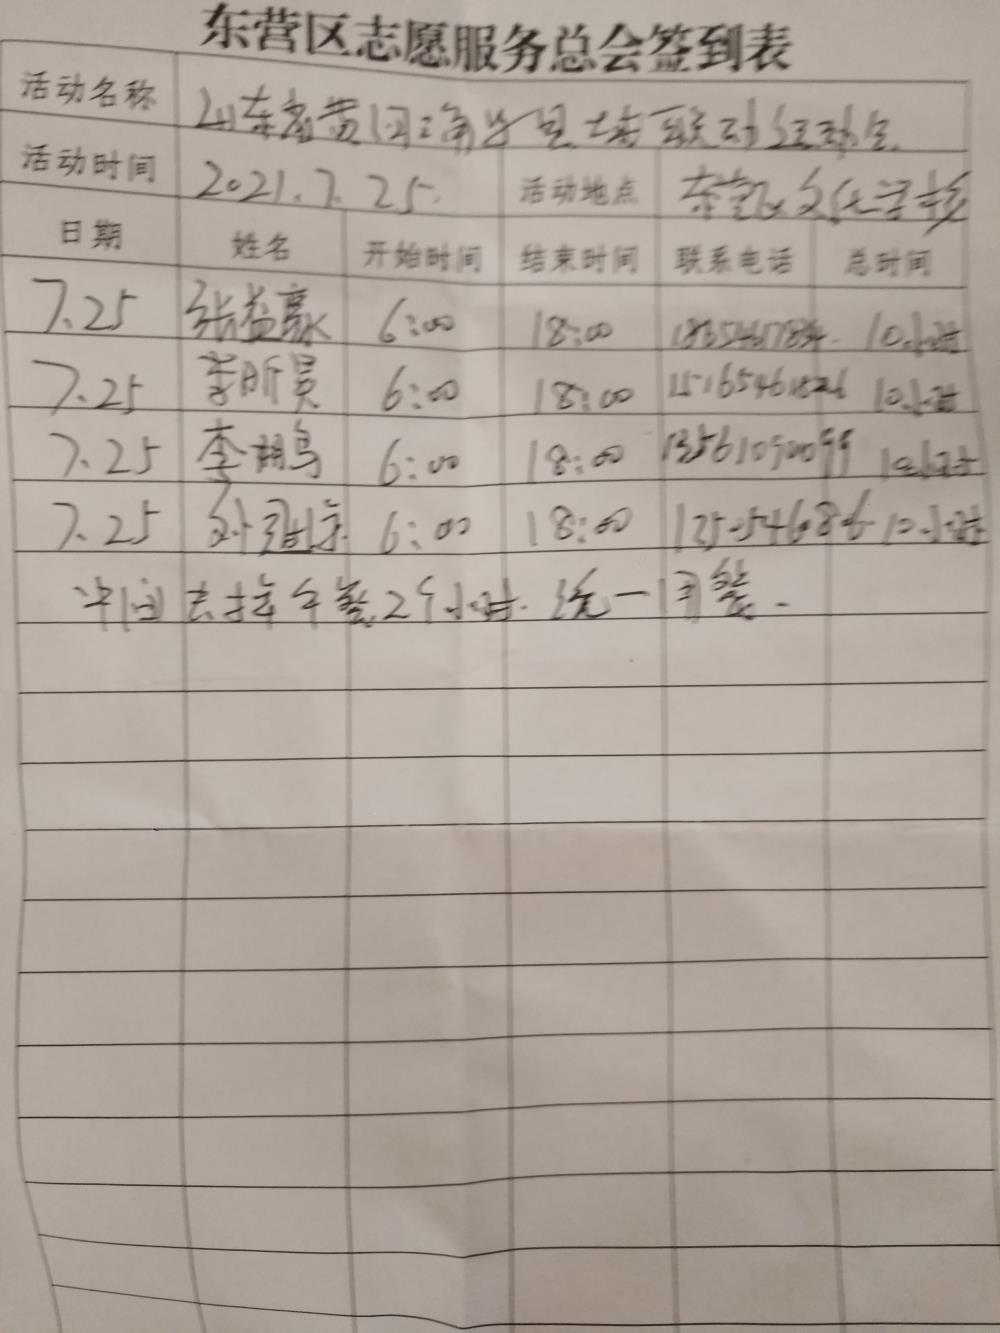 东营区志愿服务总会签到表
活动名称 山东省黄河三角 联动
活动时间 2021.7.25. 活动地点 东营区文化学校
日期 姓名 开始时间 结束时间 联系电话 总时间
7.25 张益豪 6:00 18:00 10小时
7.25 李昕昊 6:00 18:00 10小时
7.25 李鹏鸟 6:00 18:00 13561090099 10小时
7.25 6:00 18:00 10小时
中间去掉午餐2个小时. 统一用餐.